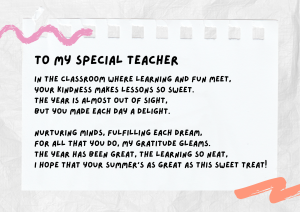 TO MY SPECIAL TEACHER
IN THE CLASSROOM WHERE LEARNING AND FUN MEET,
YOUR KINDNESS MAKES LESSONS SO SWEET.
THE YEAR IS ALMOST OUT OF SIGHT,
BUT YOU MADE EACH DAY A DELIGHT.
NURTURING MINDS, FULFILLING EACH DREAM,
FOR ALL THAT YOU DO, MY GRATITUDE GLEAMS.
THE YEAR HAS BEEN GREAT, THE LEARNING SO NEAT,
I HOPE THAT YOUR SUMMER'S AS GREAT AS THIS SWEET TREAT!